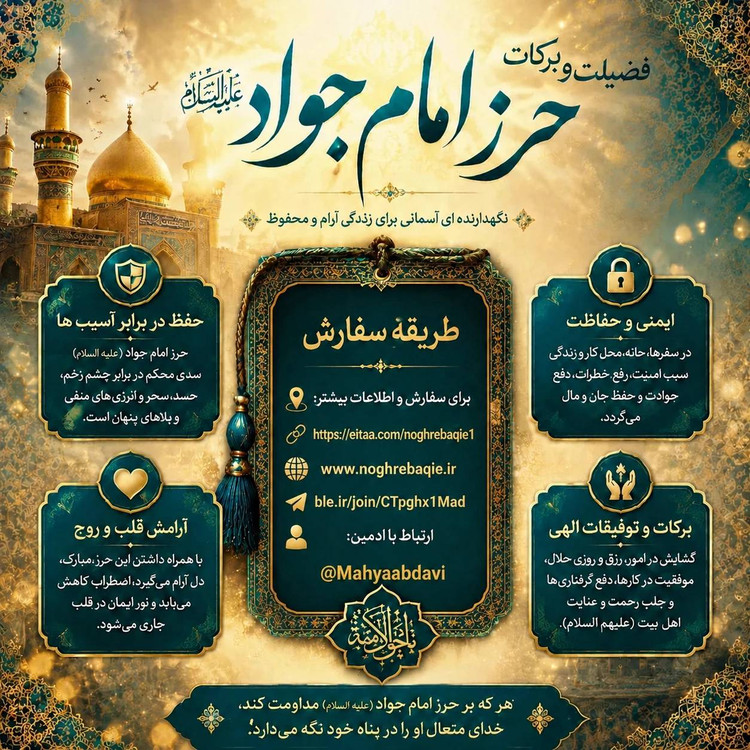 فضیلت و برکات
حرز امام جواد
علیه السلام
نگهدارنده ای آسمانی برای زندگی آرام و محفوظ
حفظ در برابر آسیب ها
حرز امام جواد (علیه السلام)
سدی محکم در برابر چشم زخم،
حسد، سحر و انرژی‌های منفی
و بلاهای پنهان است.
ایمنی و حفاظت
در سفرها، خانه، محل کار و زندگی
سبب امنیت، رفع خطرات، دفع
حوادث و حفظ جان و مال
می‌گردد.
طریقهٔ سفارش
برای سفارش و اطلاعات بیشتر:
https://eitaa.com/noghrebaqie1
www.noghrebaqie.ir
ble.ir/join/CTpghx1Mad
ارتباط با ادمین:
@Mahyaabdavi
آرامش قلب و روح
با همراه داشتن این حرز مبارک،
دل آرام می‌گیرد، اضطراب کاهش
می‌یابد و نور ایمان در قلب
جاری می‌شود.
برکات و توفیقات الهی
گشایش در امور، رزق و روزی حلال،
موفقیت در کارها، دفع گرفتاری‌ها
و جلب رحمت و عنایت
اهل بیت (علیهم السلام).
هر که بر حرز امام جواد (علیه السلام) مداومت کند،
خدای متعال او را در پناه خود نگه می‌دارد.